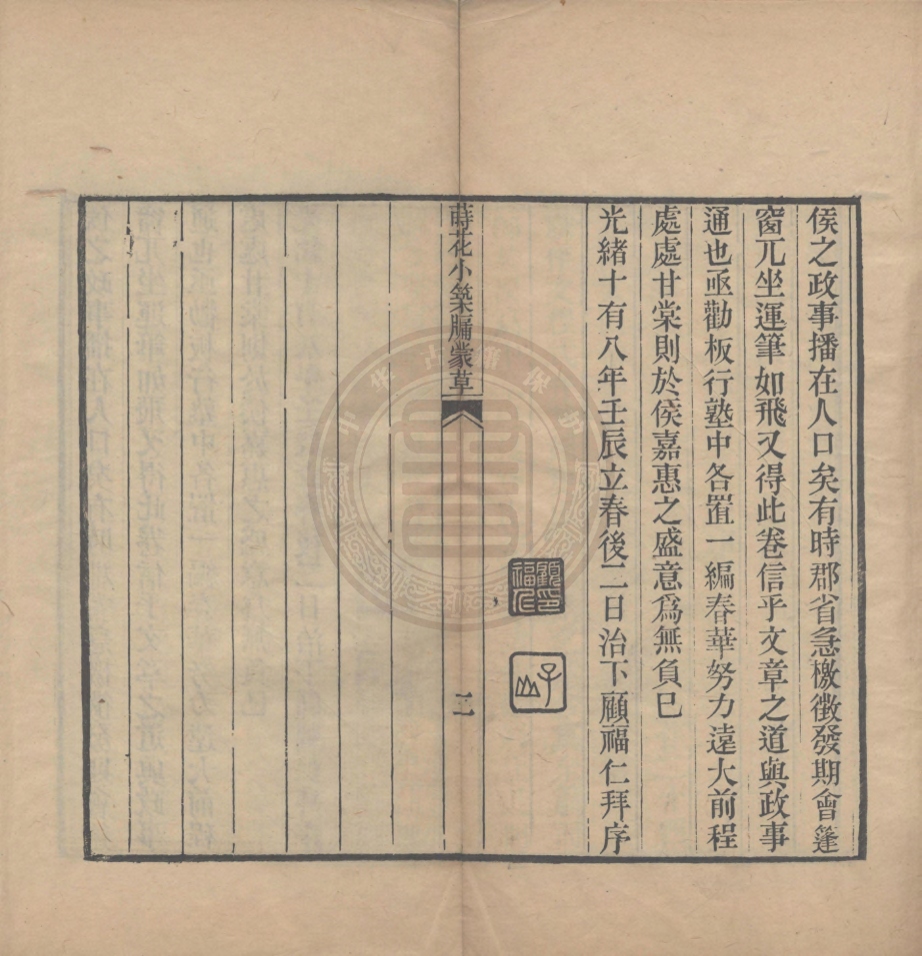 侯之政事播在人口矣有時郡省急檄徵發期會篷
窗兀坐運筆如飛又得此卷信乎文章之道與政事
通也亟勸板行塾中各置一編春華努力遠大前程
處處甘棠則於侯嘉惠之盛意爲無負巳
光緒十有八年壬辰立春後二日治下顧福仁拜序
顧印福仁
子山
蒔花小築牖蒙草
二